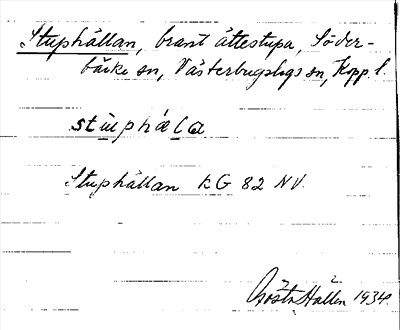 Stuphällan, brant ättestupa, Söder-
bärke sn, Västerbergslags sn, Kopp. l.
stùphäla
Stuphällan kG 82 NV.
Gösta Hallén 1934.